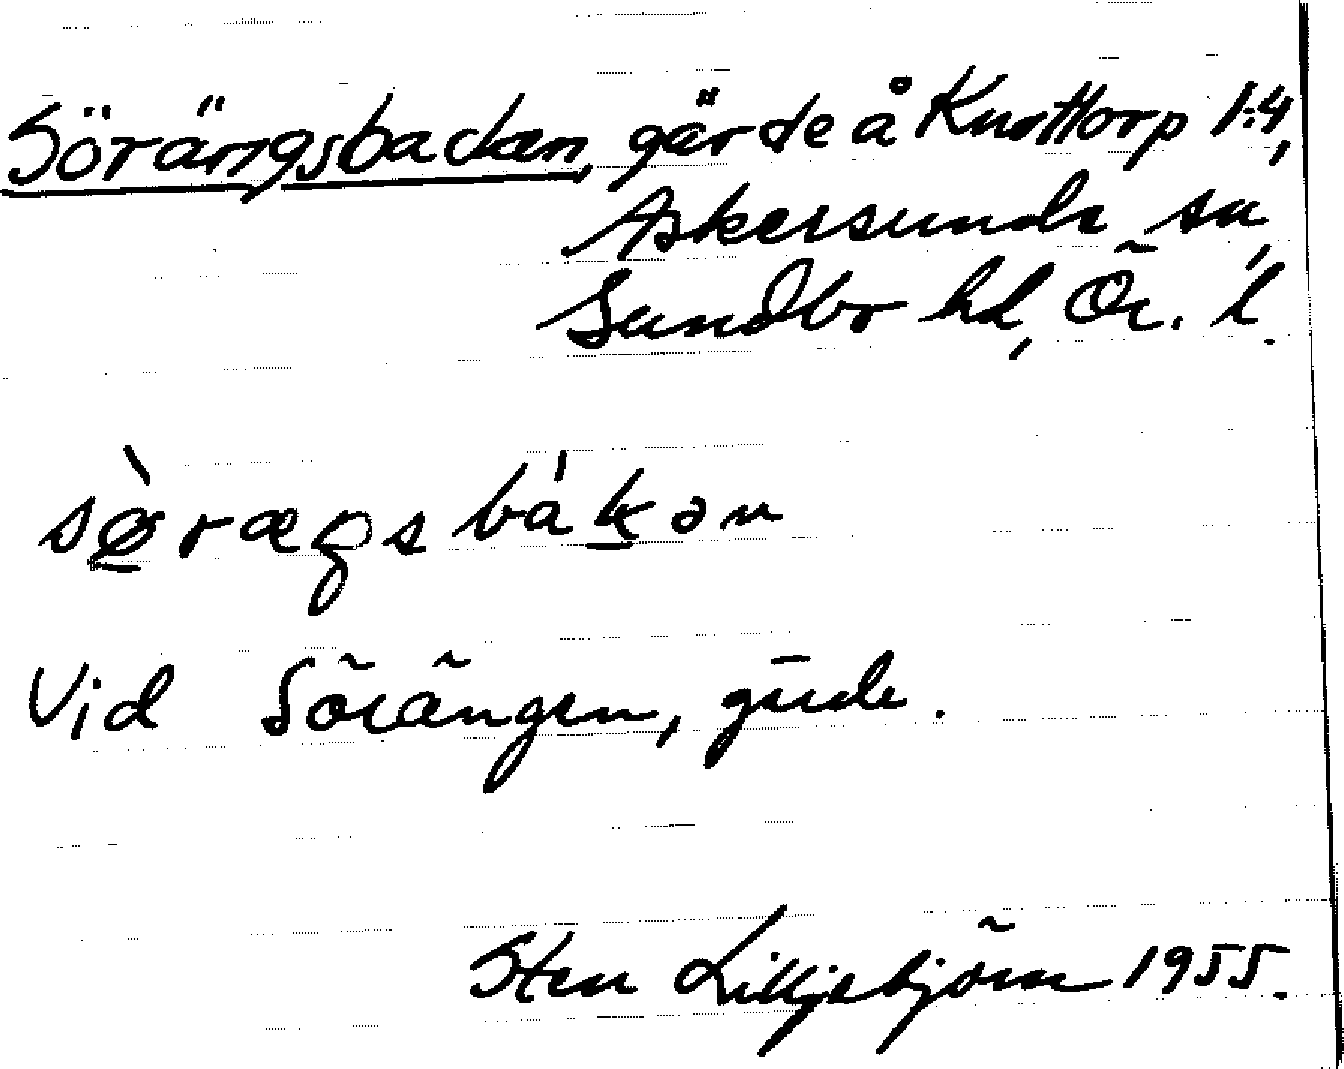 Sörängsbacken, gärde å Knottorp 1:4,
Askersunds sn,
Sundbo hd, Ör. l.
Vid Sörängen, gärde.
Sten Lilljebjörn 1955.